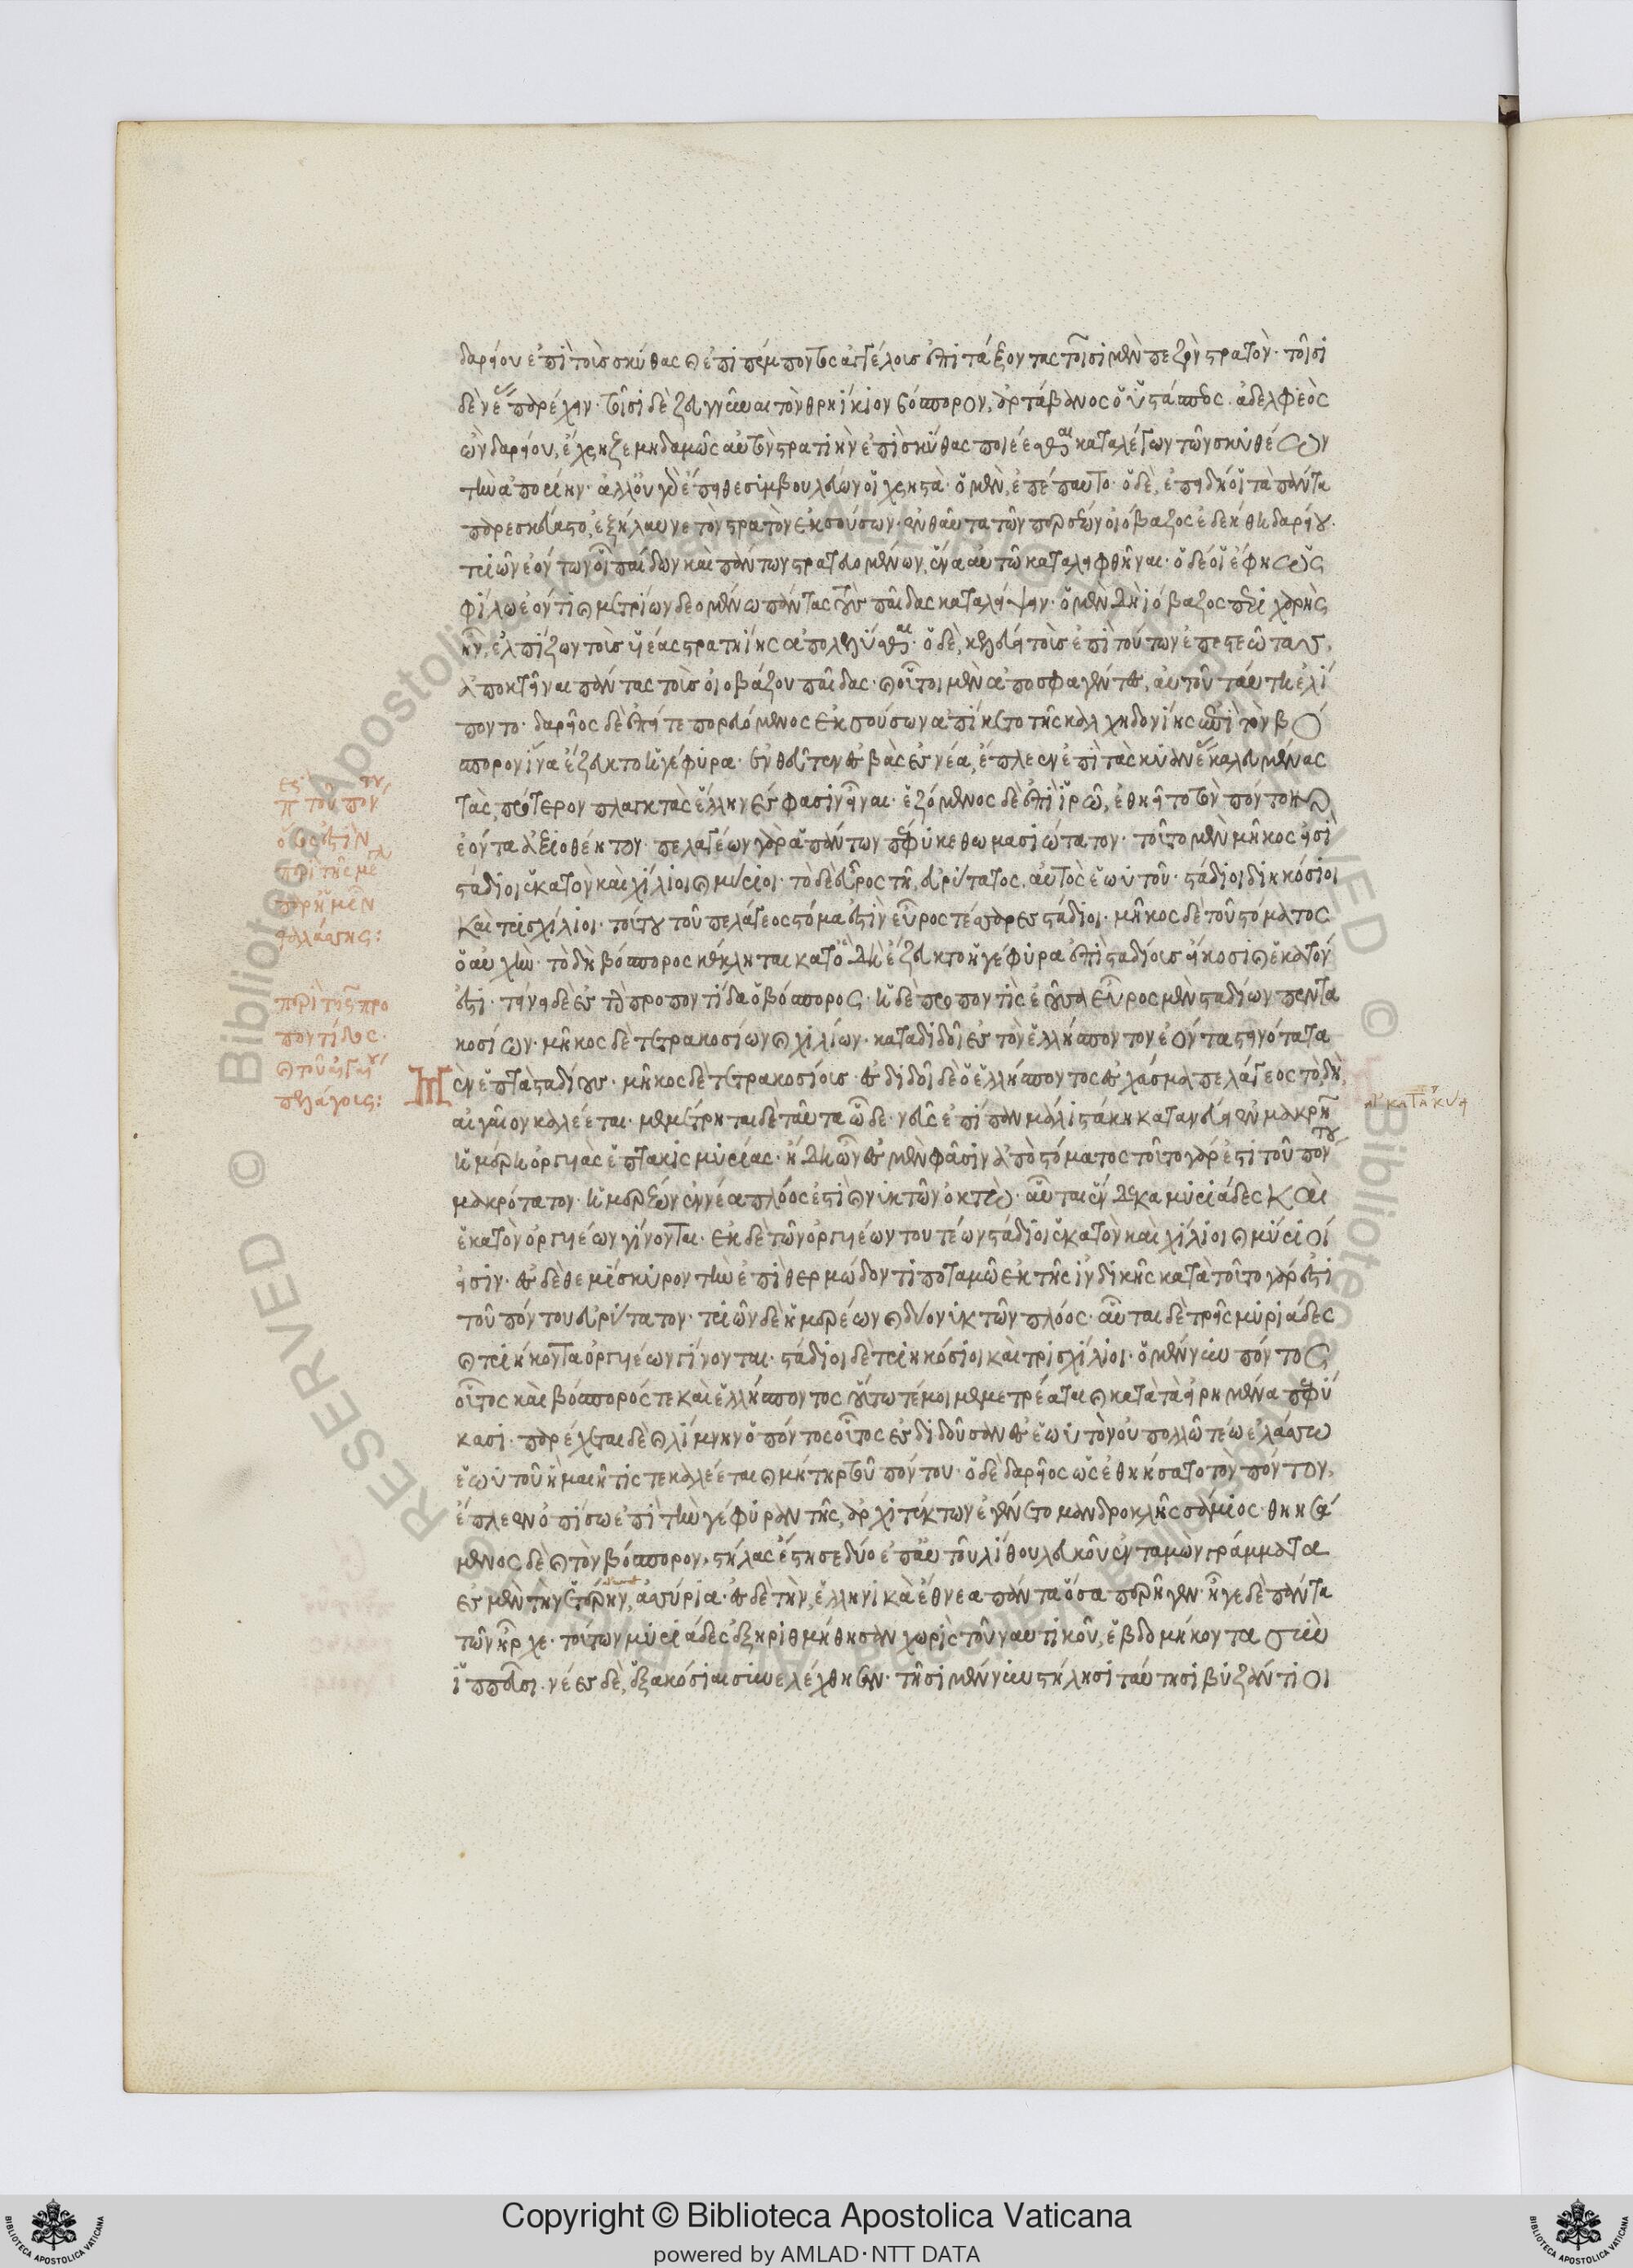 δαρείου ἐπὶ τοὺς σκύθας καὶ ἐπιπέμποντος ἀγγέλους ἐπιτάξοντας τοῖσι μὲν πεζὸν στρατὸν· τοῖσι
δὲ νέας παρέχειν· τοῖσι δὲ ζευγνύναι τὸν θρηίκιον βόσπορον, ἀρτάβανος ὁ ὑστάσπεος· ἀδελφεὸς
ὢν δαρείου, ἔχρηζε μηδαμῶς αὐτὸν στρατιὴν ἐπὶ σκύθας ποιέεσθαι καταλέγων τῶν σκυθέων
τὴν ἀπορίην· ἀλλ' οὐ γὰρ ἔπειθε συμβουλεύων οἱ χρηστὰ· ὁ μὲν, ἐπέπαυτο· ὁ δὲ, ἐπειδή οἱ τὰ πάντα
παρεσκεύαστο, ἐξήλαυνε τὸν στρατὸν ἐκ σούσων· ἐνθαῦτα τῶν περσέων οἰόβαζος ἐδεήθη δαρείου·
τριῶν ἐόντων οἱ παίδων καὶ πάντων στρατευομένων, ἕνα αὐτῶ καταλειφθῆναι· ὁ δέ οἱ ἔφη ὡς
φίλω ἐόντι καὶ μετρίων δεομένω πάντας τοὺς παῖδας καταλείψειν· ὁ μὲν δὴ οἰόβαζος περιχαρὴς
ἦν, ἐλπίζων τοὺς υἱέας στρατηίης ἀπολελύσθαι· ὁ δὲ, κελεύει τοὺς ἐπὶ τούτων ἐπεστεῶτας,
ἀποκτεῖναι πάντας τοὺς οἰοβάζου παῖδας· καὶ οὗτοι μὲν ἀποσφαγέντες, αὐτοῦ ταύτη ἐλί
ποντο· δαρεῖος δὲ ἐπείτε πορευόμενος ἐκ σούσων ἀπίκετο τῆς καλχηδονίης ἐπὶ τὸν βό
σπορον ἵνα ἔζευκτο ἡ γέφυρα· ἐνθεῦτεν ἐσβὰς ἐς νέα, ἔπλεεν ἐπὶ τὰς κυανέας καλευμένας
τὰς, πρότερον πλαγκτὰς ἕλληνες φασὶν εἶναι· ἑζόμενος δὲ ἐπὶ ἱρῶ, ἐθηεῖτο τὸν πόντον
ἐόντα ἀξιοθέητον· πελαγέων γὰρ ἁπάντων πέφυκε θωμασιώτατον· τοῦτο μὲν μῆκος εἰσὶ
στάδιοι ἑκατὸν καὶ χίλιοι καὶ μύριοι· τὸ δὲ εὖρος τῆ εὐρύτατος, αὐτὸς ἑωυτοῦ· στάδιοι διηκόσιοι
καὶ τρισχίλιοι· τούτου τοῦ πελάγεος στόμα ἐστὶν εὖρος τέσσαρες στάδιοι· μῆκος δὲ τοῦ στόματος
ὁ αὐχὴν· τὸ δὴ βόσπορος κέκληται κατ' ὃ δὴ ἔζευκτο ἡ γέφυρα ἐπὶ σταδίους εἴκοσι καὶ ἑκατόν
ἐστι· τείνει δὲ ἐς τὴν προποντίδα ὁ βόσπορος· ἡ δὲ προποντὶς ἐοῦσα εὖρος μὲν σταδίων πεντα
κοσίων· μῆκος δὲ τετρακοσίων καὶ χιλίων· καταδιδοῖ ἐς τὸν ἑλλήσποντον ἐόντα στεινότατα
μὲν ἑπτὰ σταδίους· μῆκος δὲ τετρακοσίους· ἐκδιδοῖ δὲ ὁ ἑλλήσποντος ἐς χάσμα πελάγεος τὸ δὴ
αἰγαῖον καλέεται· μεμέτρηται δὲ ταῦτα ὧδε· νηῦς ἐπίπαν μάλιστά κη κατανύει ἐν μακρημε
ἡμέρη ὀργυιὰς ἑπτακισμυρίας·
μακρότατον· ἡμερέων ἐννέα πλόος ἐστὶ καὶ νυκτῶν ὀκτὼ· αὗται ἕνδεκα μυριάδες καὶ
ἑκατὸν ὀργυιέων γίνονται· ἐκ δὲ τῶν ὀργυιέων τουτέων στάδιοι ἑκατὸν καὶ χίλιοι καὶ μύριοί
εἰσιν· ἐς δὲ θεμισκύρην τὴν ἐπὶ θερμώδοντι ποταμῶ ἐκ τῆς ἰνδικῆς κατὰ τοῦτο γάρ ἐστι
τοῦ πόντου εὐρύτατον· τριῶν δὲ ἡμερέων καὶ δύο νυκτῶν πλόος· αὗται δὲ τρεῖς μυριάδες
καὶ τριήκοντα ὀργυιέων γίνονται· στάδιοι δὲ τριηκόσιοι καὶ τρισχίλιοι· ὁ μέν νυν πόντος
οὗτος καὶ βόσπορός τε καὶ ἑλλήσποντος οὕτω τέ μοι μεμετρέαται καὶ κατὰ τὰ εἰρημένα πεφύ
κασι· παρέχεται δὲ καὶ λίμνην ὁ πόντος οὗτος ἐκδιδοῦσαν ἐς ἑωυτὸν οὐ πολλῶ τέω ἐλάσσω
ἑωυτοῦ ἣ μαιῆτίς τε καλέεται καὶ μήτηρ τοῦ πόντου· ὁ δὲ δαρεῖος ὡς ἐθηήσατο τὸν πόντον,
ἔπλεεν ὀπίσω ἐπὶ τὴν γέφυραν τῆς, ἀρχιτέκτων ἐγένετο μανδροκλῆς σάμιος· θηησά
μενος δὲ καὶ τὸν βόσπορον, στήλας ἔστησε δύο ἐπ' αὐτοῦ λίθου λευκοῦ ἐνταμὼν γράμματα
ἐς μὲν τὴν ἑτέρην, ἀσσύρια· ἐς δὲ τὴν, ἑλληνικὰ ἔθνεα πάντα ὅσα περ ἦγεν· ἦγε δὲ πάντα
τῶν ἦρχε· τούτων μυριάδες ἐξηριθμήθησαν χωρὶς τοῦ ναυτικοῦ, ἑβδομήκοντα σὺν
ἱππεῦσι· νέες δὲ, ἑξακόσιαι συνελέχθησαν· τῆσι μέν νυν στήλησι ταύτησι βυζάντιοι
περὶ τῆς προ
ποντίδος·
καὶ τοῦ αἰγαίου
πελάγους: